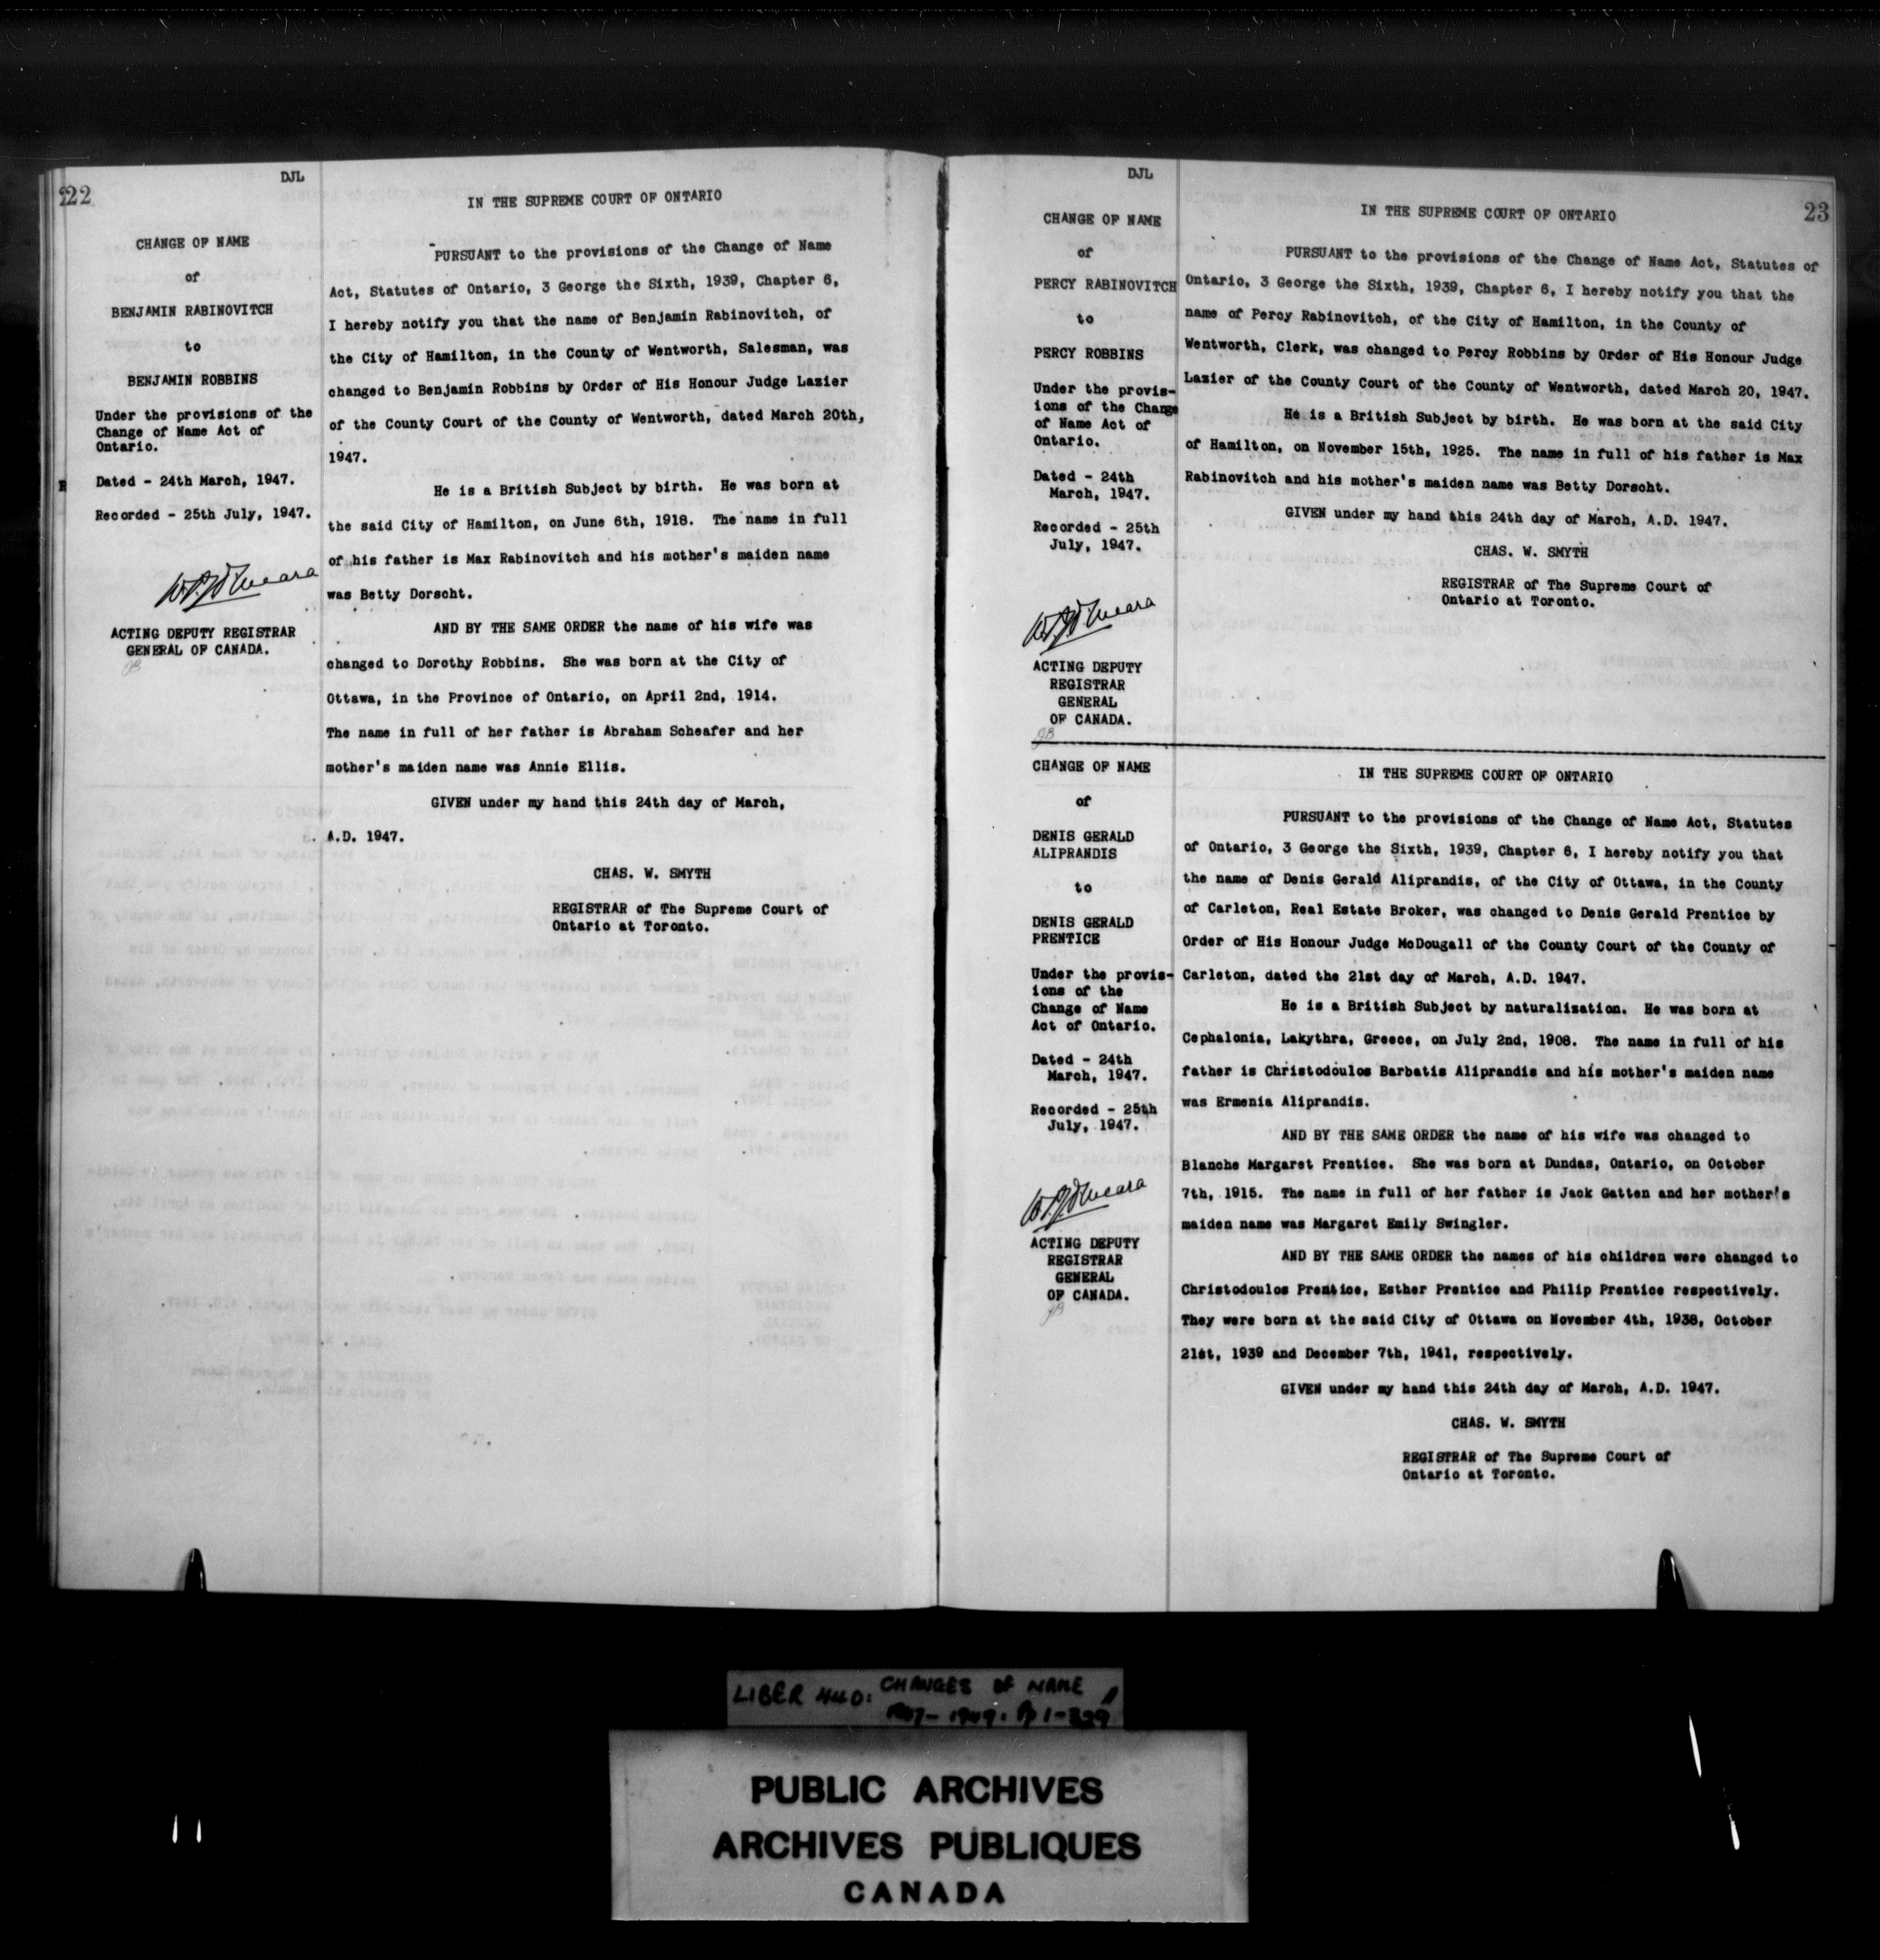 22
DJL
CHANGE OF NAME
of
BENJAMIN RABINOVITCH
to
BENJAMIN ROBBINS
Under the provisions of the
Change of Name Act of
Ontario.
Dated - 24th March, 1947.
Recorded - 25th July, 1947.
ACTING DEPUTY REGISTRAR
GENERAL OF CANADA.
IN THE SUPREME COURT OF ONTARIO
PURSUANT to the provisions of the Change of Name
Act, Statutes of Ontario, 3 George the Sixth, 1939, Chapter 6,
I hereby notify you that the name of Benjamin Rabinovitch, of
the City of Hamilton, in the County of Wentworth, Salesman, was
changed to Benjamin Robbins by Order of His Honour Judge Lazier
of the County Court of the County of Wentworth, dated March 20th,
1947.
He is a British Subject by birth. He was born at
the said City of Hamilton, on June 6th, 1918. The name in full
of his father is Max Rabinovitch and his mother's maiden name
was Betty Dorscht.
AND BY THE SAME ORDER the name of his wife was
changed to Dorothy Robbins. She was born at the City of
Ottawa, in the Province of Ontario, on April 2nd, 1914.
The name in full of her father is Abraham Scheafer and her
mother's maiden name was Annie Ellis.
GIVEN under my hand this 24th day of March,
A.D. 1947.
CHAS. W. SMYTH
REGISTRAR of The Supreme Court of
Ontario at Toronto.
DJL
23
CHANGE OF NAME
of
PERCY RABINOVITCH
to
PERCY ROBBINS
Under the provis-
ions of the Change
of Name Act of
Ontario.
Dated - 24th
March, 1947.
Recorded - 25th
July, 1947.
ACTING DEPUTY
REGISTRAR
GENERAL
OF CANADA.
JB
IN THE SUPREME COURT OF ONTARIO
PURSUANT to the provisions of the Change of Name Act, Statutes of
Ontario, 3 George the Sixth, 1939, Chapter 6, I hereby notify you that the
name of Percy Rabinovitch, of the City of Hamilton, in the County of
Wentworth, Clerk, was changed to Percy Robbins by Order of His Honour Judge
Lazier of the County Court of the County of Wentworth, dated March 20, 1947.
He is a British Subject by birth. He was born at the said City
of Hamilton, on November 15th, 1925. The name in full of his father is Max
Rabinovitch and his mother's maiden name was Betty Dorscht.
GIVEN under my hand this 24th day of March, A.D. 1947.
CHAS. W. SMYTH
REGISTRAR of The Supreme Court of
Ontario at Toronto.
CHANGE OF NAME
of
DENIS GERALD
ALIPRANDIS
to
DENIS GERALD
PRENTICE
Under the provis-
ions of the
Change of Name
Act of Ontario.
Dated - 24th
March, 1947.
Recorded - 25th
July, 1947.
ACTING DEPUTY
REGISTRAR
GENERAL
OF CANADA.
JB
IN THE SUPREME COURT OF ONTARIO
PURSUANT to the provisions of the Change of Name Act, Statutes
of Ontario, 3 George the Sixth, 1939, Chapter 6, I hereby notify you that
the name of Denis Gerald Aliprandis, of the City of Ottawa, in the County
of Carleton, Real Estate Broker, was changed to Denis Gerald Prentice by
Order of His Honour Judge McDougall of the County Court of the County of
Carleton, dated the 21st day of March, A.D. 1947.
He is a British Subject by naturalization. He was born at
Cephalonia, Lakythra, Greece, on July 2nd, 1908. The name in full of his
father is Christodoulos Barbatis Aliprandis and his mother's maiden name
was Ermenia Aliprandis.
AND BY THE SAME ORDER the name of his wife was changed to
Blanche Margaret Prentice. She was born at Dundas, Ontario, on October
7th, 1915. The name in full of her father is Jack Gatten and her mother's
maiden name was Margaret Emily Swingler.
AND BY THE SAME ORDER the names of his children were changed to
Christodoulos Prentice, Esther Prentice and Philip Prentice respectively.
They were born at the said City of Ottawa on November 4th, 1938, October
21st, 1939 and December 7th, 1941, respectively.
GIVEN under my hand this 24th day of March, A.D. 1947.
CHAS. W. SMYTH
REGISTRAR of The Supreme Court of
Ontario at Toronto.
LIBER 440: CHANGES OF NAME
1947-1949. Pp 1-329
PUBLIC ARCHIVES
ARCHIVES PUBLIQUES
CANADA